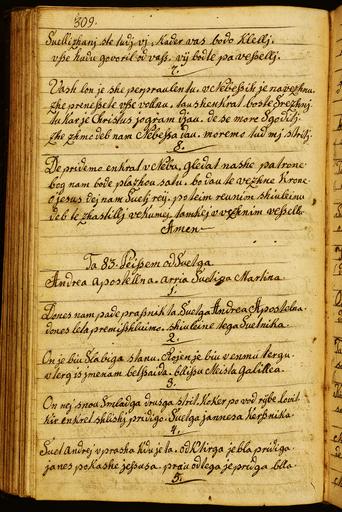 309.
Suetlizhanji ste tudi vi, Kader vas bodo Klelli,
vsse hudu govoril od vass, vij bodte pa vesselli.
7.
Vash lon je she perpraulen tu, v Nebessih je naverhnu,
zhe prenessete vsse vollnu, taushenkrat boste srezhnj.
tukar je Cristus jogram djau, de se more sgoditj,
zhe zhmo deb nam Nebessa dau, moremo tud mj stritj.
8.
De pridemo enkrat v Neba, gledat nashe patrone
bog nam bode plazhou satu, bo dau te vezhne Krone,
o jesus dej nam Suetj rej, potem reunim skiuleinu
deb te zhastilli vekumej, tamkej v vezhnim vesselle
Amen
Ta 83. Peissem od Suetga
Andrea apostellna. arria Suetiga Martina
1.
Dones nam pade prasnik ta Suetga Andrea Apostolna
dones leta premisshluimo, skiuleine tega Suetnika.
2.
On je biu Slabiga stanu, Rojen je biu v enmu tergu,
v terg is jmenam betssaida, blissu Meista Galilea.
3.
On nej snou Smladga drusga strit, Koker po vod ribe Lovit
kir enkret shlishi pridigo, Suetga jannesa Kerssnika.
4.
Suet Andrej vprasha Kdu je ta, od Ktirga je bla pridiga
janes pokashe jessusa, prau od tega je pridga bila.
5.